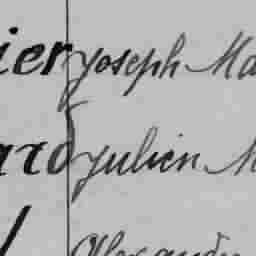 ier Joseph Ma
ard Julien M
Alexandre